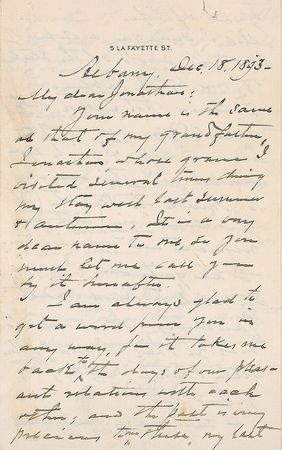 5 LA FAYETTE ST.
Albany, Dec. 18. 1893-
My dear Jonathan:
Your name is the same
as that of my grandfather,
Jonathan, whose grave I
visited several times during
my stay west last summer
& autumn. It is a very
dear name to me, so you
must let me call you
by it hereafter.
I am always glad to
get a word from you in
any way, for it takes me
back to the days of our pleas-
ant relations with each
other; and the past is very
precious to me these, my last